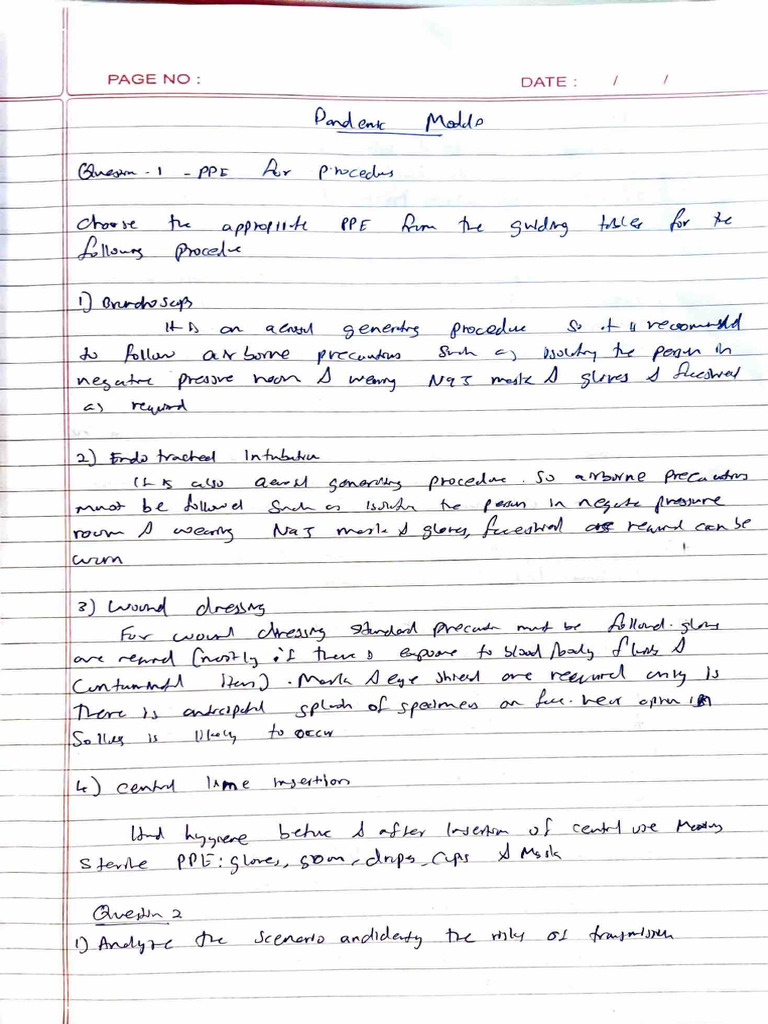 PAGE NO :
DATE : / /
Pandemic Module
Question - 1 - PPE for procedures
choose the appropriate PPE from the guiding tables for the
following procedure
1) Bronchoscopy
It is an aerosol generating procedure so it is recommended
to follow airborne precautions such as isolating the person in
negative pressure room & wearing N95 mask & gloves & faceshield
as required
2) Endotracheal Intubation
It is also aerosol generating procedure. So airborne precautions
must be followed such as isolating the person in negative pressure
room & wearing N95 mask & gloves, faceshield as required can be
worn
3) Wound dressing
For wound dressing standard precaution must be followed. gloves
are required (mostly if there is exposure to blood/body fluids &
contaminated items). Mask & eye shield are required only is
there is anticipated splash of specimens on face. near apron is
Soiling is likely to occur
4) central line insertion
Hand hygiene before & after insertion of central use
Sterile PPE: gloves, gown, drapes, caps & Mask
Question 2
1) Analyze the scenario and identify the risks of transmission